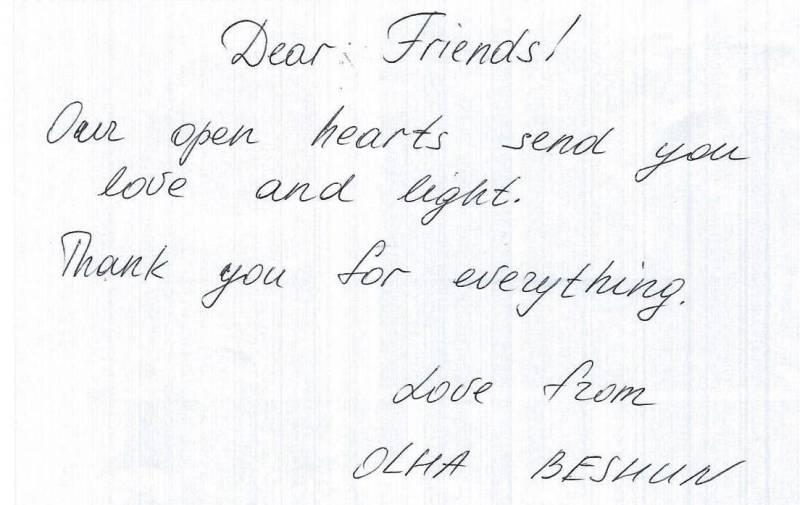 Dear Friends!
Our open hearts send you
love and light.
Thank you for everything.
Love from
OLHA BESHUN